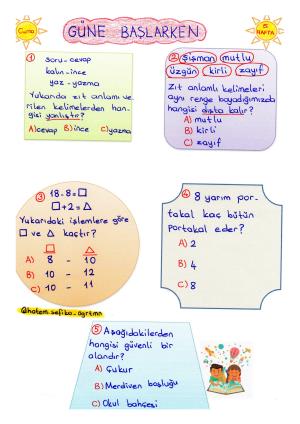 Cuma
GÜNE BAŞLARKEN
5.
HAFTA
1
soru-cevap
kalın-ince
yaz-yazma
Yukarıda zıt anlamı ve-
rilen kelimelerden han-
gisi yanlıştır?
A) cevap B) ince C) yazma
2 Şişman mutlu
üzgün kirli zayıf
Zıt anlamlı kelimeleri
aynı renge boyadığımızda
hangisi dışta kalır?
A) mutlu
B) kirli
C) zayıf
3 18-8=□
□+2=△
Yukarıdaki işlemlere göre
□ ve △ kaçtır?
□ △
A) 8 - 10
B) 10 - 12
C) 10 - 11
@hatem.sefika_ogrtmn
4 8 yarım por-
takal kaç bütün
portakal eder?
A) 2
B) 4
C) 8
5 Aşağıdakilerden
hangisi güvenli bir
alandır?
A) Çukur
B) Merdiven boşluğu
C) Okul bahçesi